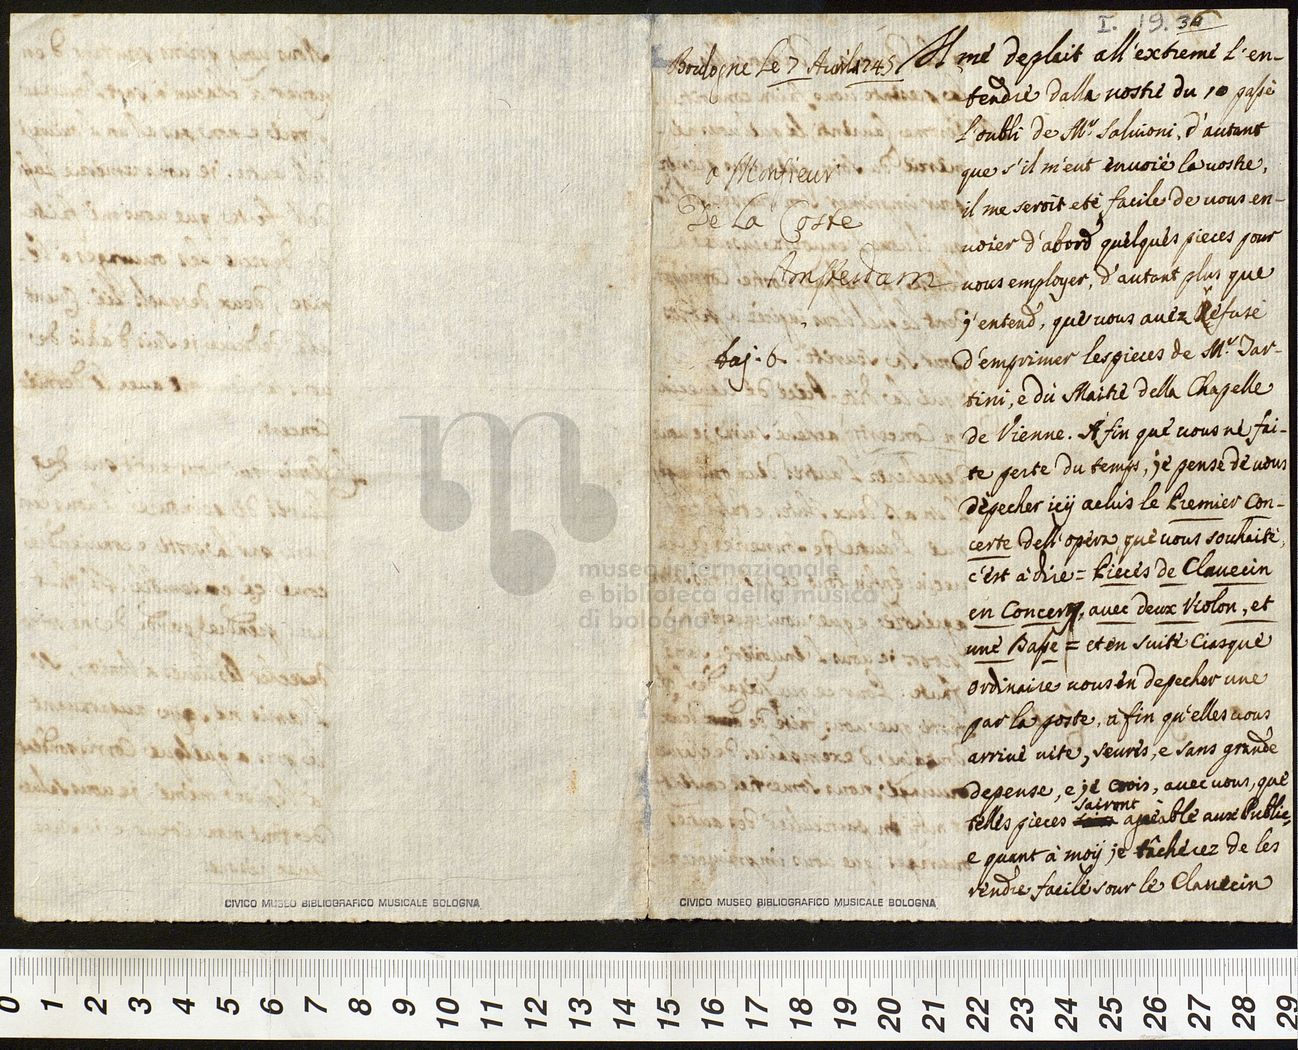 I. 19. 3a
Boulogne Le 7 Avril 1745
a Monsieur
De La Coste
Amsterdam
faj. 6.
Il me deplait all'extreme l'en-
tendre dalla vostre du 10 passè
l'oubli de Mr. Salvioni, d'autant
que s'il m'eut envoiè la vostre,
il me seroit etè facile de vous en-
voier d'abord quelques pieces pour
vous employer, d'autant plus que
j'entend, que vous avèz Refusè
d'emprimer les pieces de Mr. Tar-
tini, e du Maitre della Chapelle
de Vienne. A fin que vous ne fai-
te perte du temps, je pense de vous
dèpecher icij aclus le Premier Con-
certe dell'opéra, que vous souhaité,
c'est à dire = Pieces de Clavecin
en Concert, avec deux Violon, et
une Basse = et en suite ciasque
ordinaire vous en depecher une
par la poste, a fin qu'elles vous
arrive vite, seures, e sans grande
depense, e je crois, avec vous, que
telles pieces sairont agreable aux Public,
e quant à moij je tâcherez de les
rendre facile sour le Clavecin
museo internazionale
e biblioteca della musica
di bologna
CIVICO MUSEO BIBLIOGRAFICO MUSICALE BOLOGNA
CIVICO MUSEO BIBLIOGRAFICO MUSICALE BOLOGNA
0 1 2 3 4 5 6 7 8 9 10 11 12 13 14 15 16 17 18 19 20 21 22 23 24 25 26 27 28 29